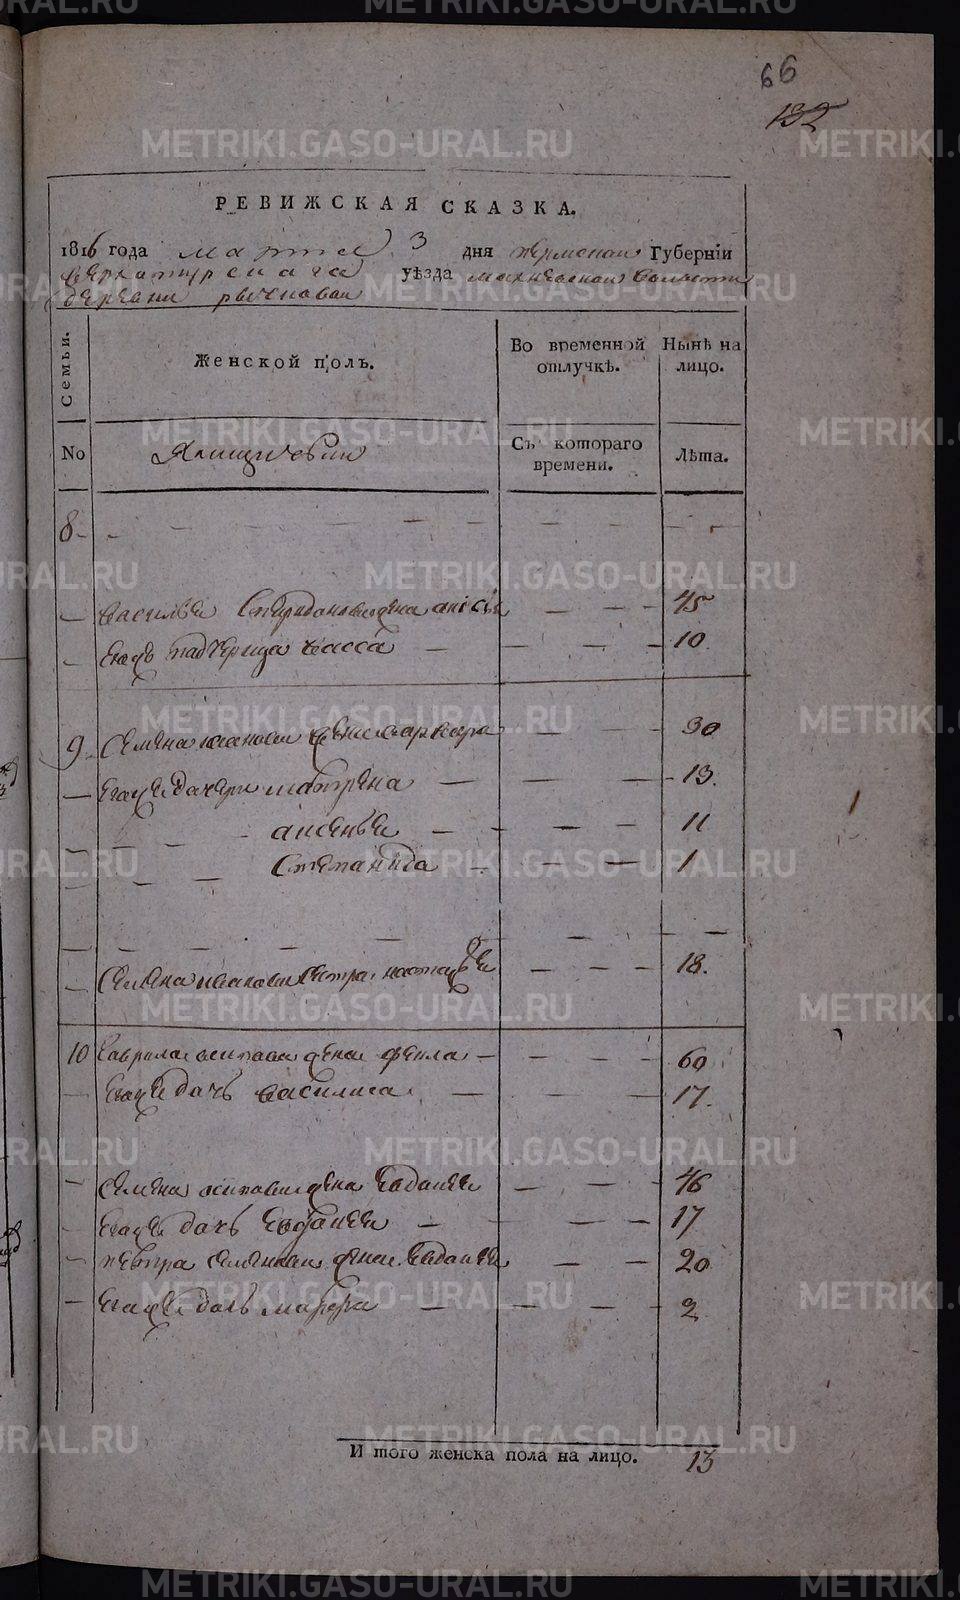 66
132
РЕВИЖСКАЯ СКАЗКА.
1816 года марта 3 дня пермской Губерніи
верхотурскаго уѣзда махневской волости
деревни
Семьи.
Женской полъ.
Во временной отлучкѣ.
Нынѣ на лицо.
No
Съ котораго времени.
Лѣта.
8
василья спиридонова жена анісья 45
егожъ падчерица васса 10
9 семена иванова жена марфа 30
егоже дочери матрена 13.
аксинья 11
степанида 1
семена иванова сестра настасья 18.
10 гаврила осипова жена фекла 60
егоже дочь василиса 17.
семена осипова жена евдокея 46
егоже дочь евдокея 17
петра семенова жена евдокея 20
егоже дочь марфа 2
И того женска пола на лицо. 13
METRIKI.GASO-URAL.RU